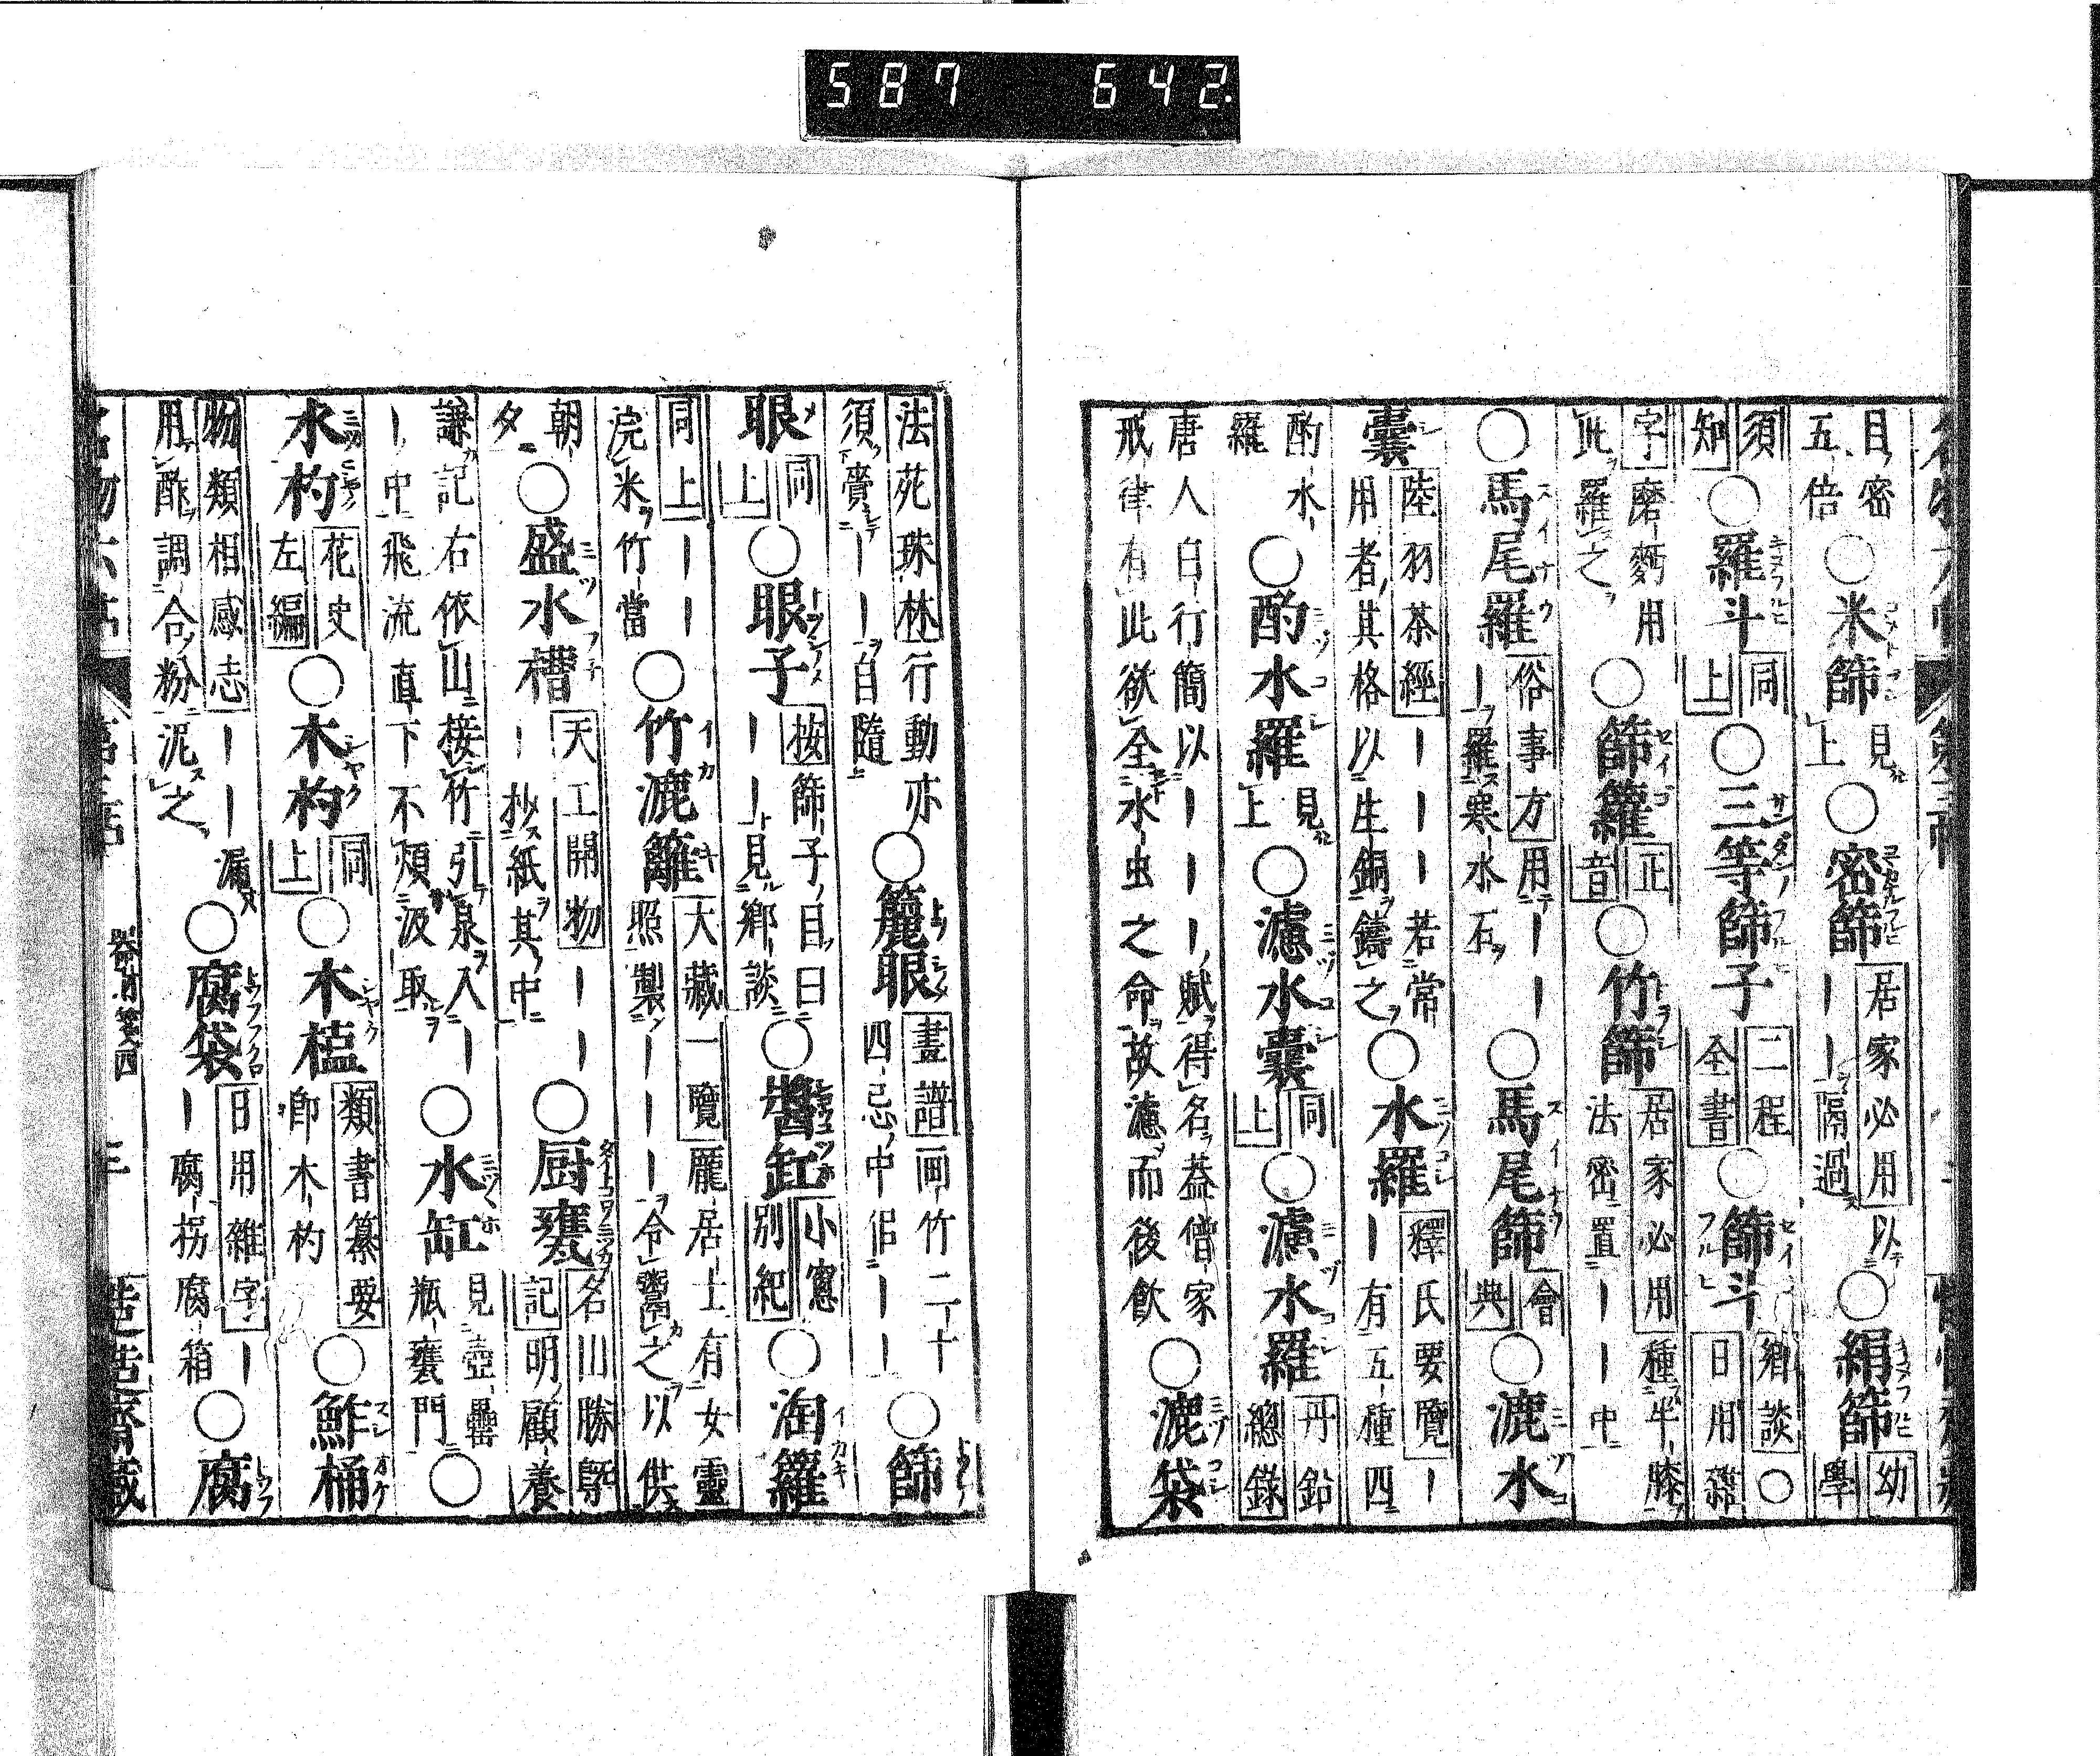 587 642
目密五倍○米篩見上○密篩居家必用以｜｜隔過○絹篩幼學
須知○羅斗同上○三等篩子二程全書○篩斗鄉談○日用雜
字磨麪用此羅之○篩籮正音○竹篩居家必用種牛膝法密置｜｜中
○馬尾羅俗事方用｜｜｜羅寒水石○馬尾篩會典○漉水
囊陸羽茶經｜｜｜若常用者其格以生銅鑄之○水羅釋氏要覽｜｜有五種四
酌水羅○酌水羅見上○濾水囊同上○濾水羅丹鉛總錄
唐人白行簡以｜｜｜賦得名葢僧家戒律有此欲全水虫之命故濾而後飲○漉袋
法苑珠林行動亦須賷｜｜自隨○籭眼畫譜画竹二十四忌中侶｜｜○篩
眼同上○眼子按篩子目曰｜｜見鄉談○醬缸小窻別紀○淘籮
同上｜｜浣米竹當○竹漉籬大藏一覽龐居士有女靈照製｜｜｜令鬻之以供
朝夕○盛水槽天工開物｜｜｜抄紙其中○厨甕名山勝槩記明顧養
謙記右依山接竹引泉入｜｜中飛流直下不煩汲取○水缸見壺罍瓶甕門○
水杓花史左編○木杓同上○木榼類書纂要即木杓○鮓桶
物類相感志｜｜漏用酢調合粉泥之○腐袋日用雜字｜｜腐拐腐箱○腐
器財箋四 三